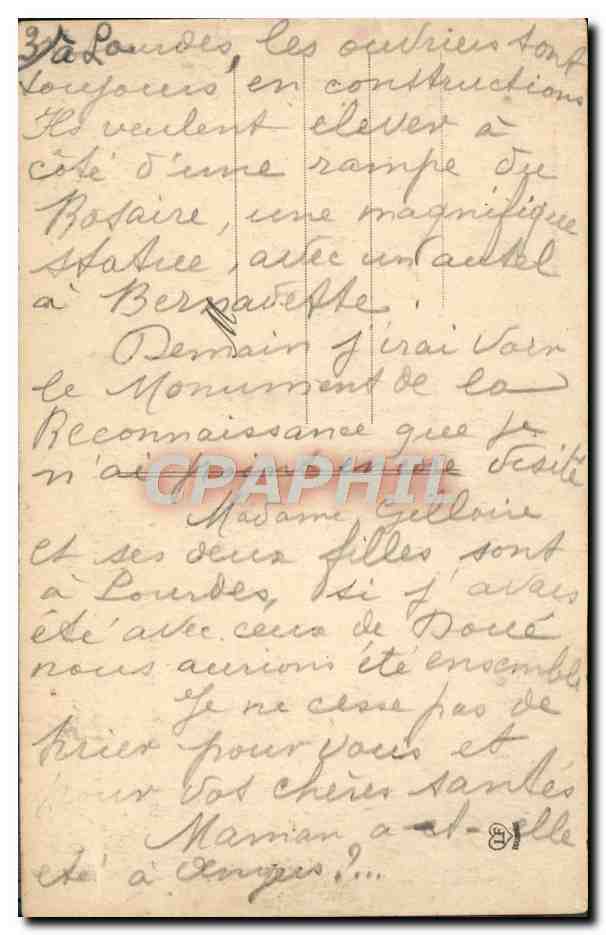 3) à Lourdes, les ouvriers sont
toujours en constructions
Ils veulent élever à
côté d'une rampe du
Rosaire, une magnifique
statue, avec un autel
à Bernadette.
Demain j'irai voir
le Monument de la
Reconnaissance que je
n'ai point encore visité
CPAPHIL
Madame Gelloire
et ses deux filles sont
à Lourdes, si j'avais
été avec ceux de Doué
nous aurions été ensemble
Je ne cesse pas de
prier pour vous et
pour vos chères santés
Maman a-t-elle
été à Angers?...
LF